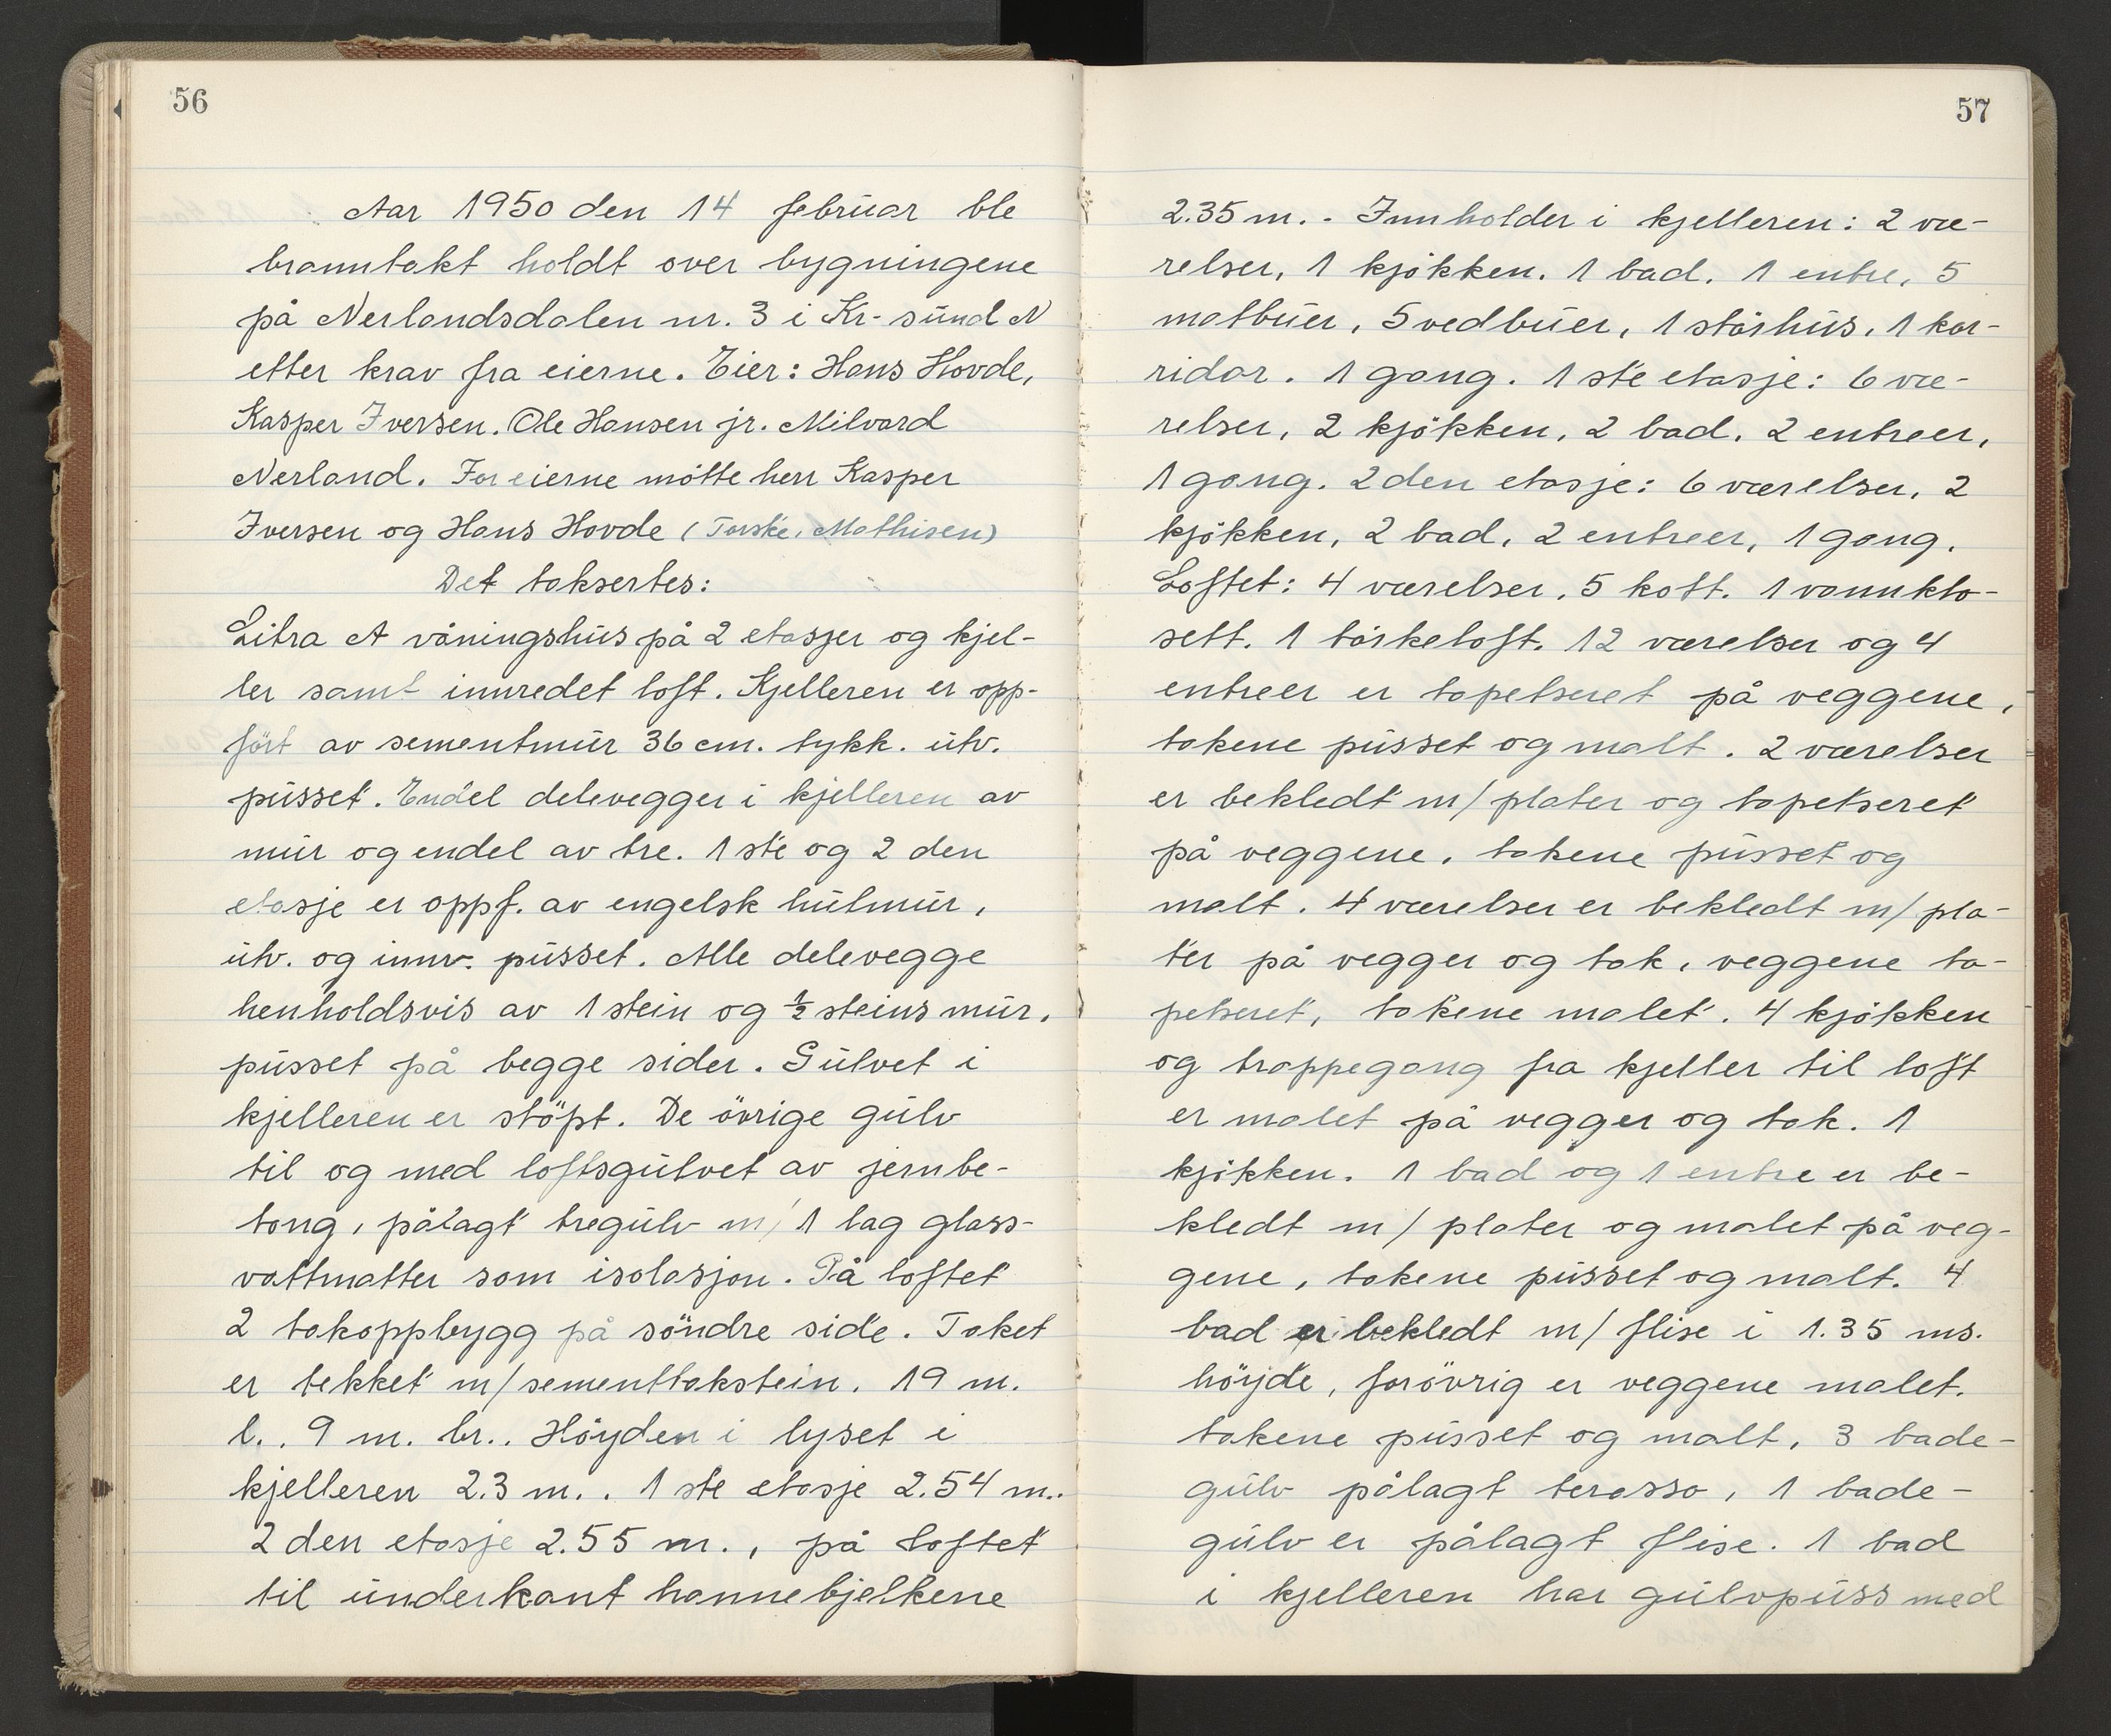 56
Aar 1950 den 14 februar ble
branntakt holdt over bygningene
på Nerlandsdalen nr. 3 i Kr-sund N
etter krav fra eierne. Eier: Hans Hovde,
Kasper Iversen. Ole Hansen jr. Milvard
Nerland. For eierne mötte herr Kasper
Iversen og Hans Hovde (Torske, Mathisen)
Det taksertes:
Litra A våningshus på 2 etasjer og kjel-
ler samt innredet loft. Kjelleren er opp-
fört av sementmur 36 cm. tykk. utv.
pusset. Endel delevegger i kjelleren av
mur og endel av tre. 1 ste og 2 den
etasje er oppf. av engelsk hulmur,
utv. og innv. pusset. Alle delevegge
henholdsvis av 1 stein og ½ steins mur,
pusset på begge sider. Gulvet i
kjelleren er stöpt. De övrige gulv
til og med loftsgulvet av jernbe-
tong, pålagt tregulv m/ 1 lag glass-
vattmatter som isolasjon. På loftet
2 takoppbygg på söndre side. Taket
er tekket m/ sementtakstein. 19 m.
l.. 9 m. br.. Höyden i lyset i
kjelleren 2.3 m.. 1 ste etasje 2.54 m..
2 den etasje 2.55 m., på loftet
til underkant hannebjelkene
57
2.35 m. - Innholder i kjelleren: 2 væ-
relser, 1 kjökken. 1 bad. 1 entre, 5
matbuer, 5 vedbuer, 1 störhus, 1 kor-
ridor. 1 gang. 1 ste etasje: 6 væ-
relser, 2 kjökken, 2 bad, 2 entreer,
1 gang. 2 den etasje: 6 værelser, 2
kjökken, 2 bad, 2 entreer, 1 gang.
Loftet: 4 værelser, 5 kott. 1 vannklo-
sett. 1 törkeloft. 12 værelser og 4
entreer er tapetseret på veggene,
takene pusset og malt. 2 værelser
er bekledt m/ plater og tapetseret
på veggene, takene pusset og
malt. 4 værelser er bekledt m/ pla-
ter på vegger og tak, veggene ta-
petseret, takene malet. 4 kjökken
og trappegang fra kjeller til loft
er malet på vegger og tak. 1
kjökken. 1 bad og 1 entre er be-
kledt m/ plater og malet på veg-
gene, takene pusset og malt. 4
bad er bekledt m/ flise i 1.35 ms.
höyde, forövrig er veggene malet.
takene pusset og malt, 3 bade-
gulv pålagt terasso, 1 bade-
gulv er pålagt flise. 1 bad
i kjelleren har gulvpuss med